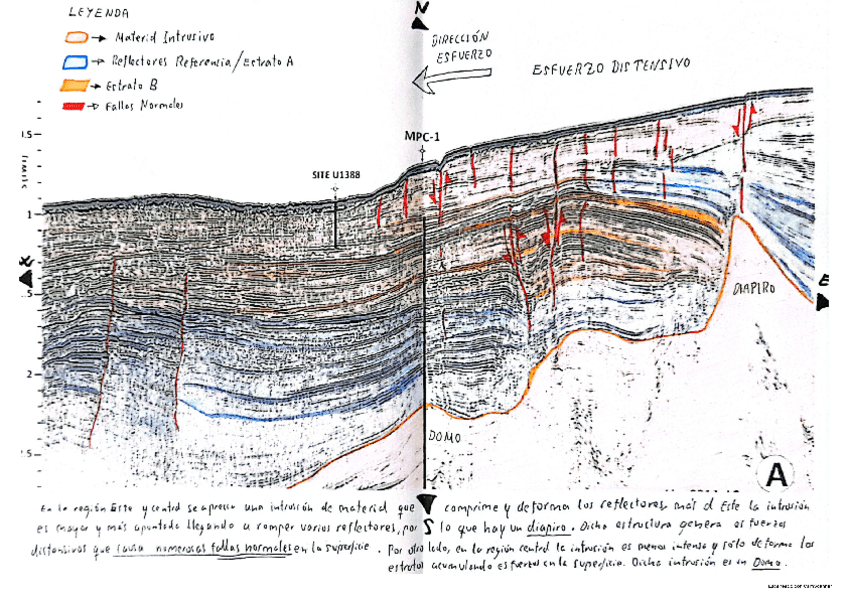 LEYENDA
→ Material Intrusivo
→ Reflectores Referencia/Estrato A
→ Estrato B
→ Fallas Normales
N
DIRECCIÓN
ESFUERZO
ESFUERZO DISTENSIVO
MPC-1
SITE U1388
1
2
E
DIAPIRO
DOMO
A
S
En la región Este y central se aprecia una intrusión de material que comprime y deforma los reflectores, más al Este la intrusión
es mayor y más apuntada llegando a romper varios reflectores, por lo que hay un diapiro. Dicha estructura genera esfuerzos
distensivos que causa numerosas fallas normales en la superficie. Por otro lado, en la región central la intrusión es menos intensa y sólo deforma los
estratos acumulando esfuerzos en la superficie. Dicha intrusión es un Domo.